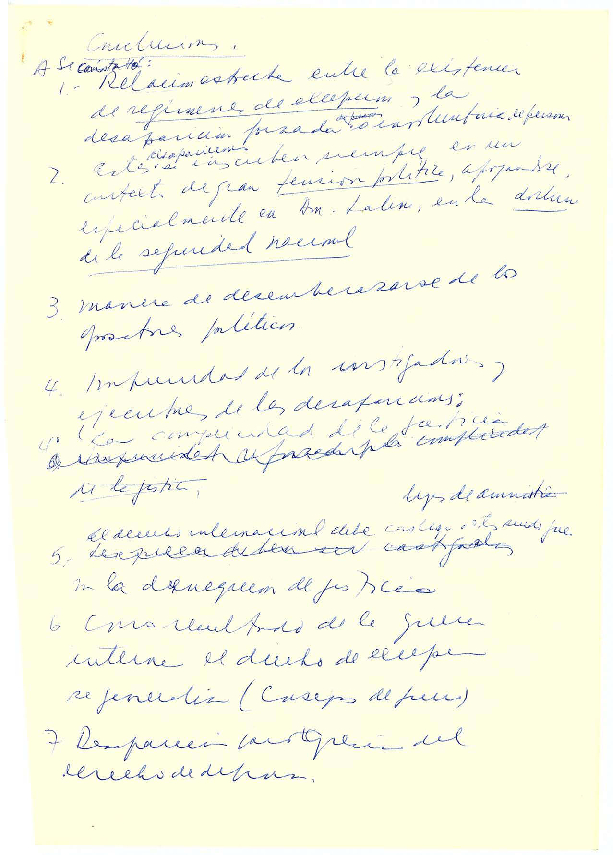 Conclusiones.
A Se constató:
1.- Relación estrecha entre la existencia
de regímenes de excepción y la
desaparición forzada o involuntaria de personas
2. Estas desapariciones se inscriben siempre en un
contexto de gran tensión política, apoyándose,
especialmente en Am. Latina, en la doctrina
de la seguridad nacional
3. manera de desembarazarse de los
opositores políticos
4. Impunidad de los instigadores y
ejecutores de las desapariciones;
4' la complicidad de la justicia
de la justicia,
leyes de amnistía
el derecho internacional debe castigar
5.- deben ser castigados
en la denegación de justicia
6 Como resultado de la guerra
interna el derecho de excepción
se generaliza (Consejos de guerra)
7 Desaparición del
derecho de defensa.